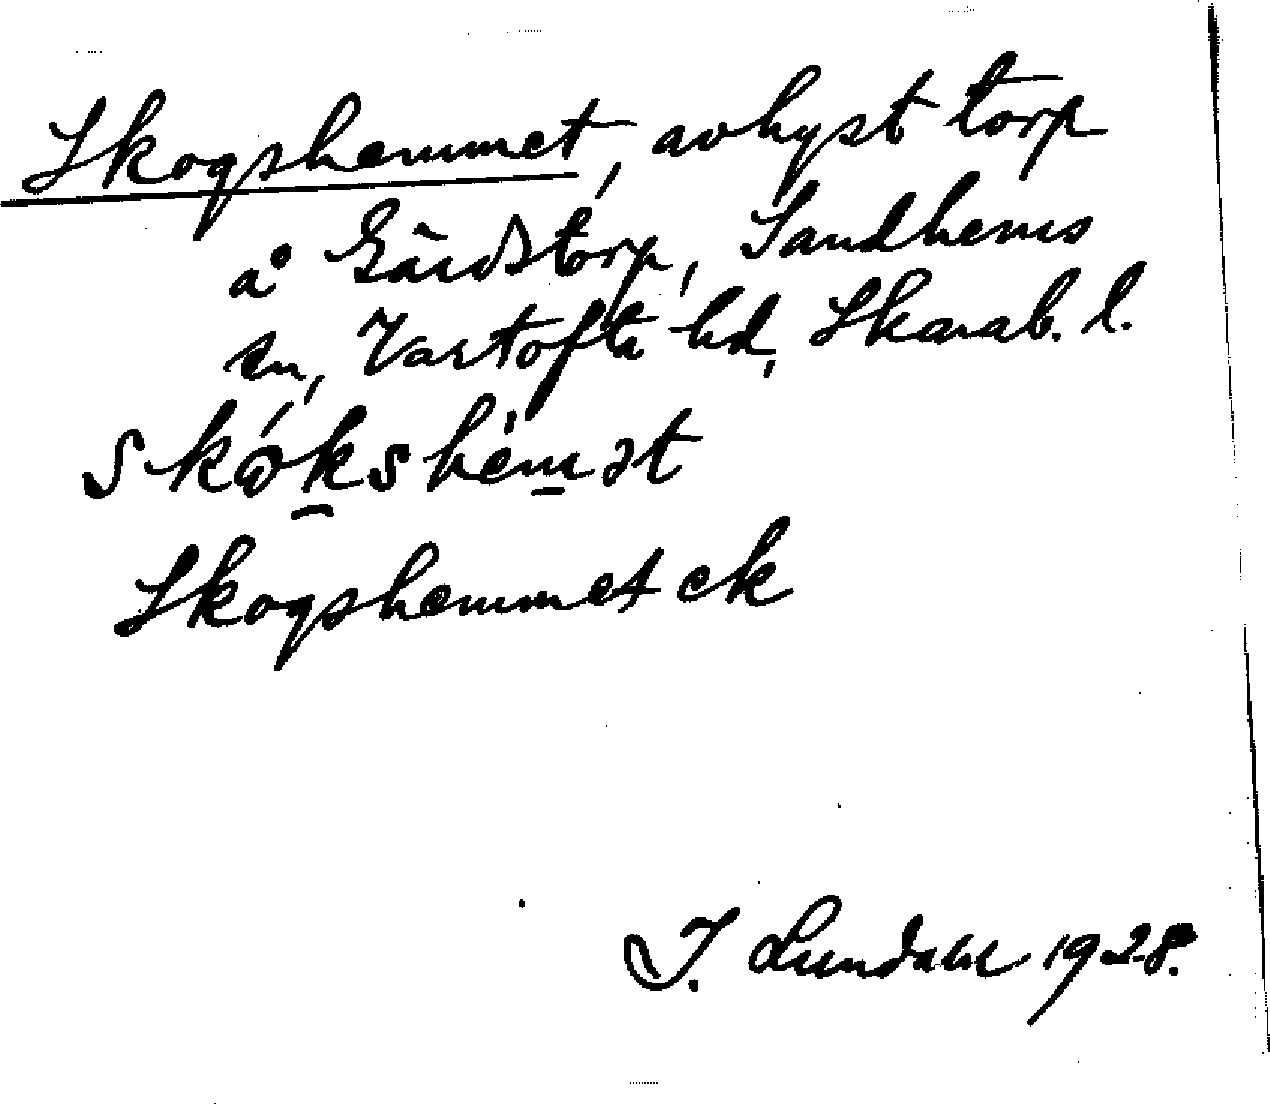 Skogshemmet, avhyst torp
å Gärdstorp, Sandhems
sn, Vartofta hd, Skarab. l.
skɷ́kshèmət
Skogshemmet ek
I. Lundahl 1928.